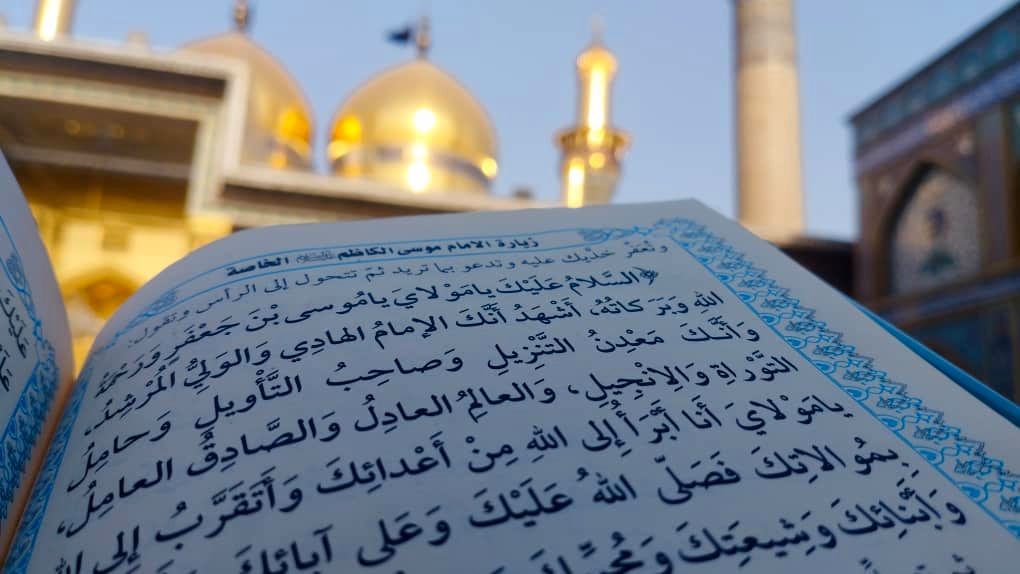 زيارة الامام موسى الكاظم الخاصة
وتُعفّر خديك عليه وتدعو بما تريد ثم تتحول إلى الرأس وتقول:
السَّلامُ عَلَيْكَ يامَوْلايَ يامُوسى بْنَ جَعْفَر وَرَحْمَةُ
اللهِ وَبَرَكاتُهُ، أَشْهَدُ أَنَّكَ الإمامُ الهادِي وَالوَلِيُّ المُرْشِدُ،
وَأَنَّكَ مَعْدِنُ التَّنْزِيلِ وَصاحِبُ التَّأْوِيلِ وَحامِلُ
التَّوْراةِ وَالإِنْجِيلِ، وَالعالِمُ العادِلُ وَالصَّادِقُ العامِلُ،
يامَوْلايَ أَنا أَبْرَأُ إِلى اللهِ مِنْ أَعْدائِكَ وَأَتَقَرَّبُ إِلى اللهِ
بِمُوالاتِكَ فَصَلّى اللهُ عَلَيْكَ وَعَلى آبائِكَ
وَأَبْنائِكَ وَشِيعَتِكَ وَمُحِبِّيكَ